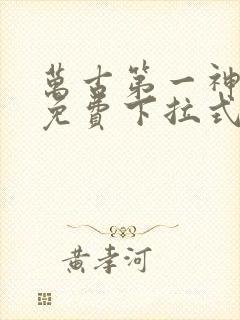 萬古第一神
免費下拉式
黃孝河